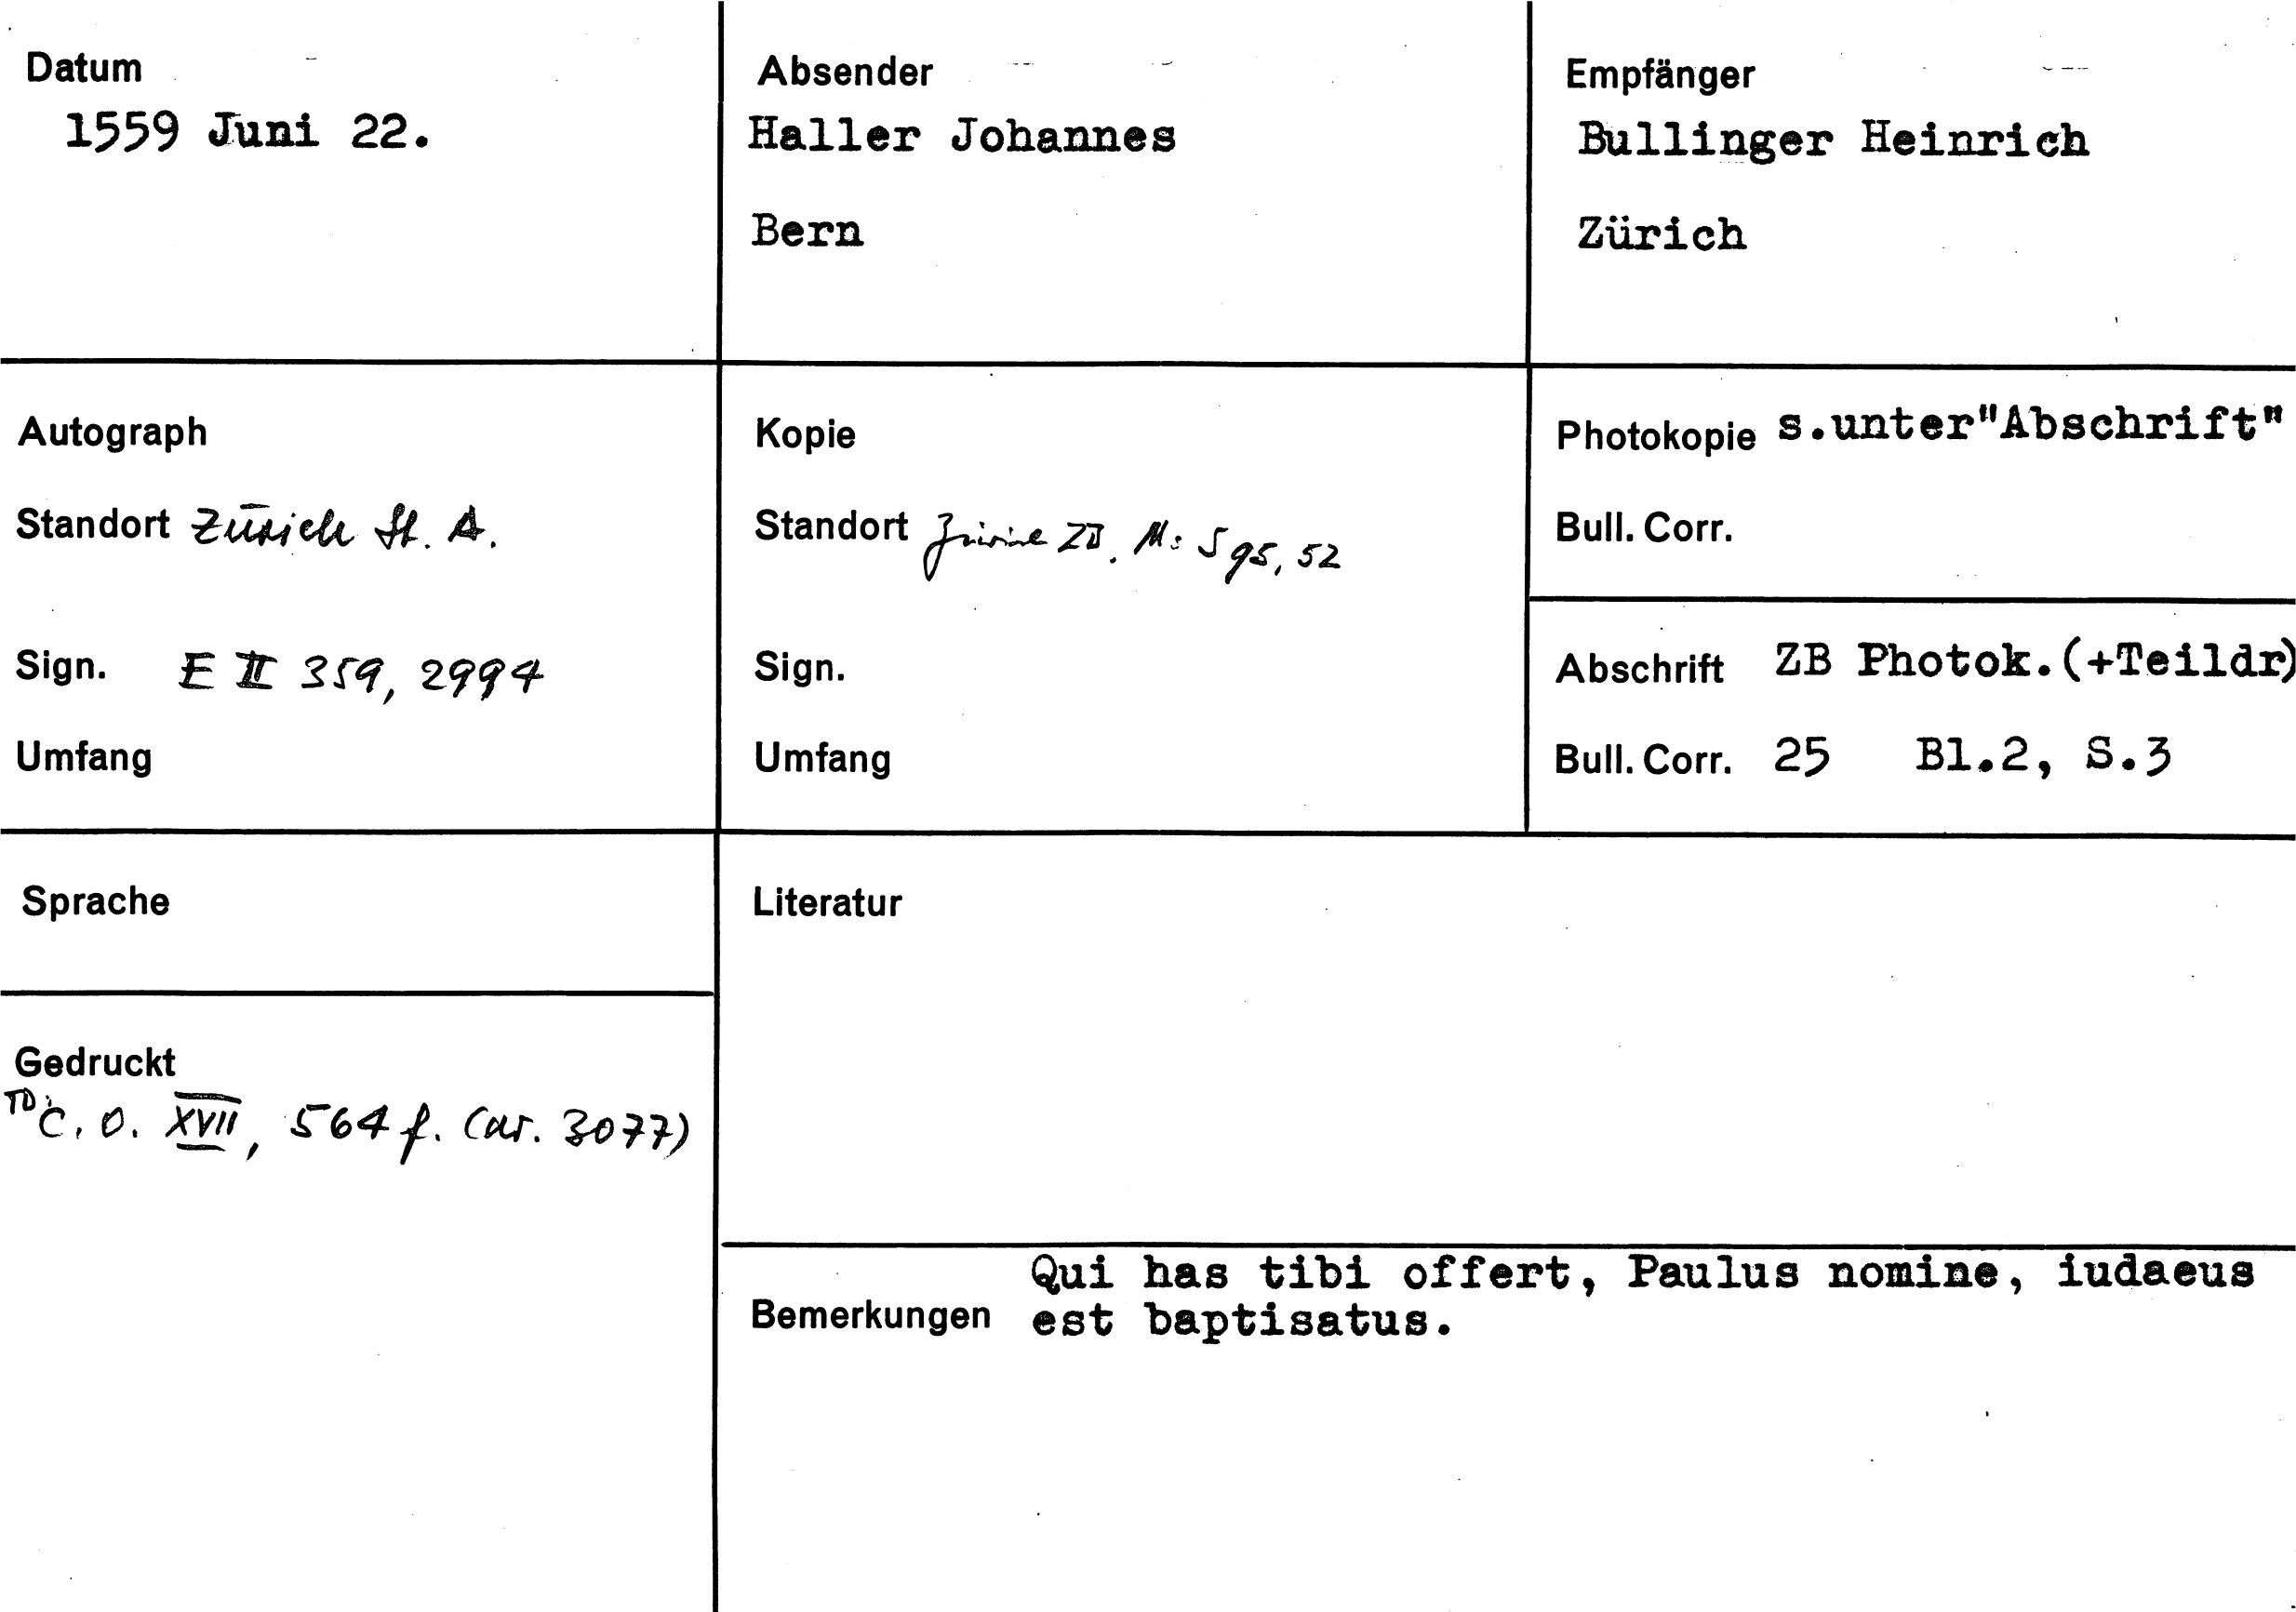 Datum
1559 Juni 22.
Absender
Haller Johannes
Bern
Empfänger
Bullinger Heinrich
Zürich
Autograph
Standort Zürich St. A.
Sign. E II 359, 2994
Umfang
Kopie
Standort Zürich ZB. Ms S 95, 52
Sign.
Umfang
Photokopie s.unter"Abschrift"
Bull. Corr.
Abschrift ZB Photok.(+Teildr)
Bull. Corr. 25 Bl.2, S.3
Sprache
Gedruckt
TD: C. O. XVII, 564 f. (nr. 3077)
Literatur
Bemerkungen
Qui has tibi offert, Paulus nomine, iudaeus
est baptisatus.